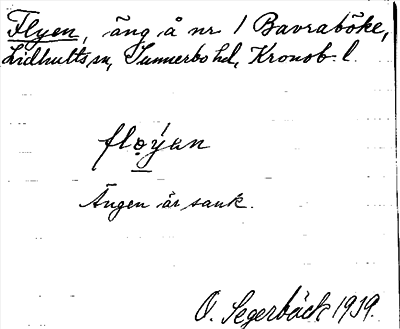 Flyen, äng å nr 1 Bavraböke,
Lidhults sn, Sunnerbo hd, Kronob. l.
fløýan
Ängen är sank.
O. Segerbäck 1919.